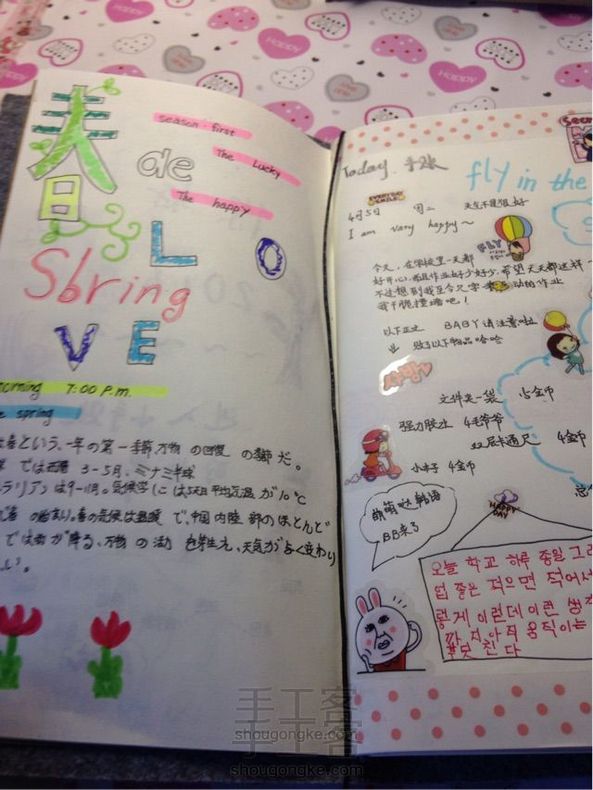 春
de
season first
The Lucky
The happy
L O
Sbring
V E
morning 7:00 P.m.
e spring
は春という、一年の第一季節万物の回復の季節だ。
では西暦 3-5月、ミナミ半球
ラリアンは9-11月。気候学には5天日平均気温が10℃
の始まり。春の気候は温暖で、中国内陸部のほとんど
では雨が降る、万物の活 芽生え、天気がよく変わり
い。
Secret
Today. 手账
fly in the
EVERYDAY SMILE
4月5日 周二 天气不是很好
I am very happy~
FLY
今天，在学校里一天都
好开心，而且作业好少好少，希望天天都这样
不过想到我至今只字 动的作业
我干脆撞墙吧！
以下正文 BABY请注意
致了以下物品哈哈
文件夹一袋 15金币
强力胶水 4毛爷爷
双层卡通尺 4金币
小本子 4金币
总
萌萌哒韩语
BB来了
HAPPY DAY
오늘 학교 하루 종일 그
업 좋은 적으면 적어서
렇게 이런데 이런 생각
까지 아직 움직이는
못 친다
手工客
shougongke.com
手工客
shougongke.com